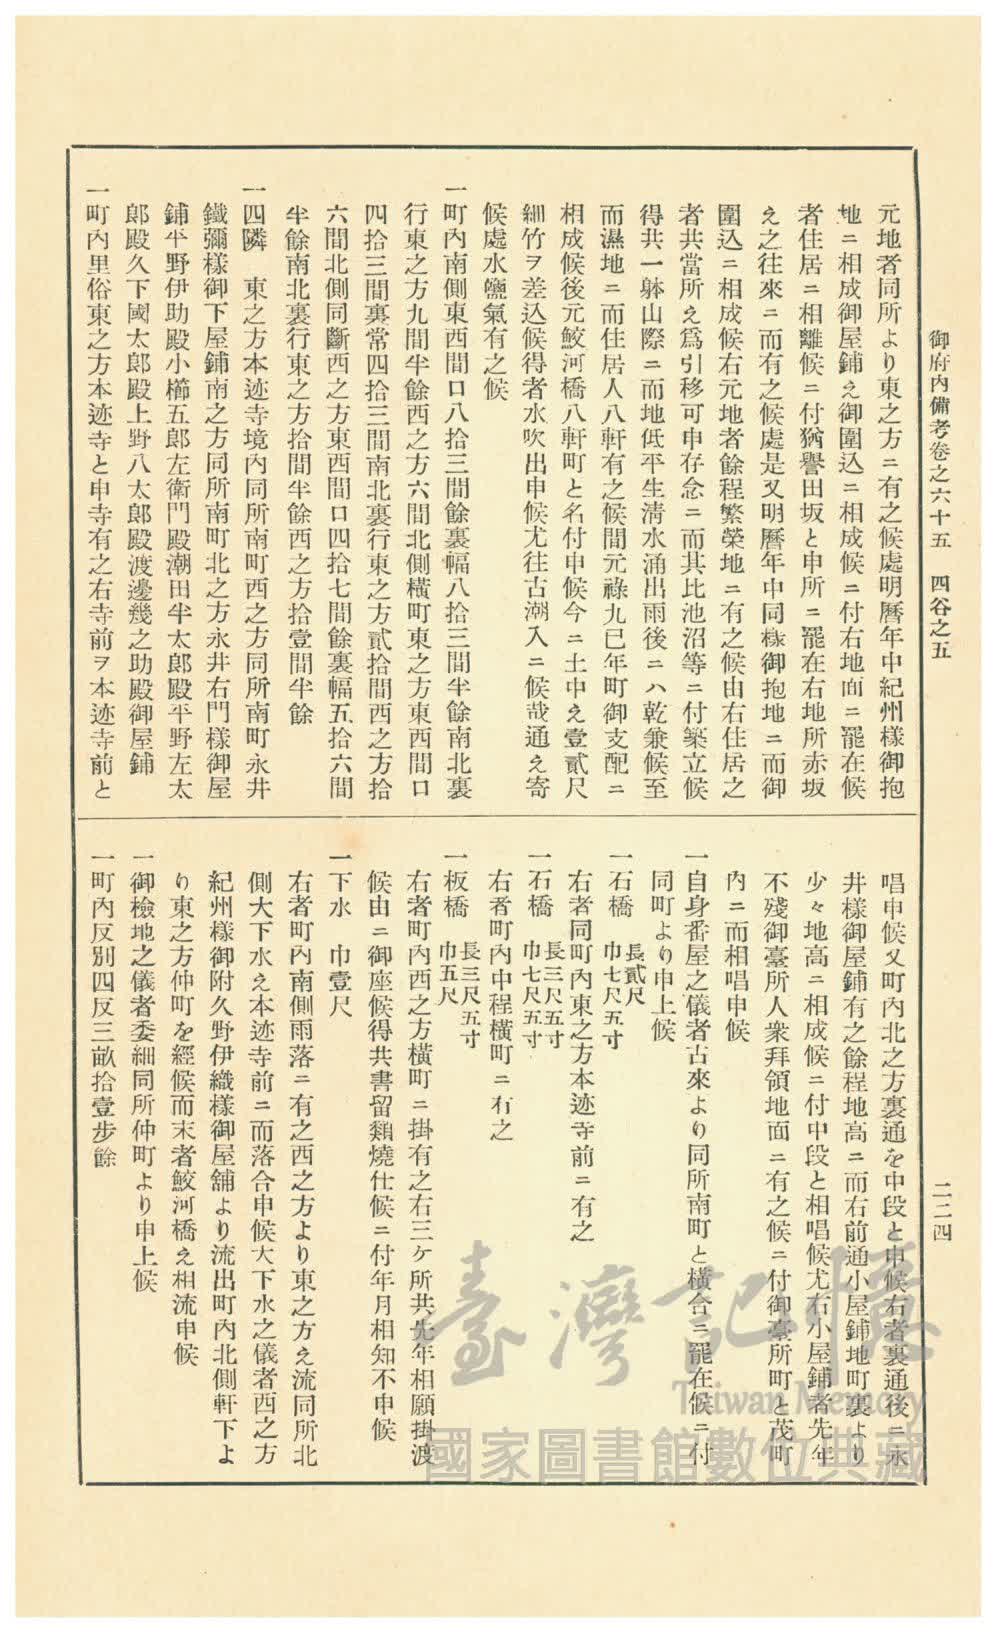 御府內備考卷之六十五　四谷之五
二二四
元地者同所より東之方ニ有之候處明曆年中紀州樣御抱
地ニ相成御屋鋪え御圍込ニ相成候ニ付右地面ニ罷在候
者住居ニ相離候ニ付猶譽田坂と申所ニ罷在右地所赤坂
え之往來ニ而有之候處是又明曆年中同樣御抱地ニ而御
圍込ニ相成候右元地者餘程繁榮地ニ有之候由右住居之
者共當所え爲引移可申存念ニ而其比池沼等ニ付築立候
得共一躰山際ニ而地低平生淸水涌出雨後ニハ乾兼候至
而濕地ニ而住居人八軒有之候間元祿九巳年町御支配ニ
相成候後元鮫河橋八軒町と名付申候今ニ土中え壹貳尺
細竹ヲ差込候得者水吹出申候尤往古潮入ニ候哉通え寄
候處水鹽氣有之候
一町內南側東西間口八拾三間餘裏幅八拾三間半餘南北裏
行東之方九間半餘西之方六間北側橫町東之方東西間口
四拾三間裏常四拾三間南北裏行東之方貳拾間西之方拾
六間北側同斷西之方東西間口四拾七間餘裏幅五拾六間
半餘南北裏行東之方拾間半餘西之方拾壹間半餘
一四隣　東之方本迹寺境內同所南町西之方同所南町永井
鐵彌樣御下屋鋪南之方同所南町北之方永井右門樣御屋
鋪平野伊助殿小櫛五郞左衛門殿潮田半太郞殿平野左太
郞殿久下國太郞殿上野八太郞殿渡邊幾之助殿御屋鋪
一町內里俗東之方本迹寺と申寺有之右寺前ヲ本迹寺前と
唱申候又町內北之方裏通を中段と申候右者裏通後ニ永
井樣御屋鋪有之餘程地高ニ而右前通小屋鋪地町裏より
少々地高ニ相成候ニ付中段と相唱候尤右小屋鋪者先年
不殘御臺所人衆拜領地面ニ有之候ニ付御臺所町と茂町
內ニ而相唱申候
一自身番屋之儀者古來より同所南町と橫合ニ罷在候ニ付
同町より申上候
一石橋　長貳尺　巾七尺五寸
右者同町內東之方本迹寺前ニ有之
一石橋　長三尺五寸　巾七尺五寸
右者町內中程橫町ニ有之
一板橋　長三尺五寸　巾五尺
右者町內西之方橫町ニ掛有之右三ケ所共先年相願掛渡
候由ニ御座候得共書留類燒仕候ニ付年月相知不申候
一下水　巾壹尺
右者町內南側雨落ニ有之西之方より東之方え流同所北
側大下水え本迹寺前ニ而落合申候大下水之儀者西之方
紀州樣御附久野伊織樣御屋舖より流出町內北側軒下よ
り東之方仲町を經候而末者鮫河橋え相流申候
一御檢地之儀者委細同所仲町より申上候
一町內反別四反三畝拾壹步餘
臺灣記憶
Taiwan Memory
國家圖書館數位典藏